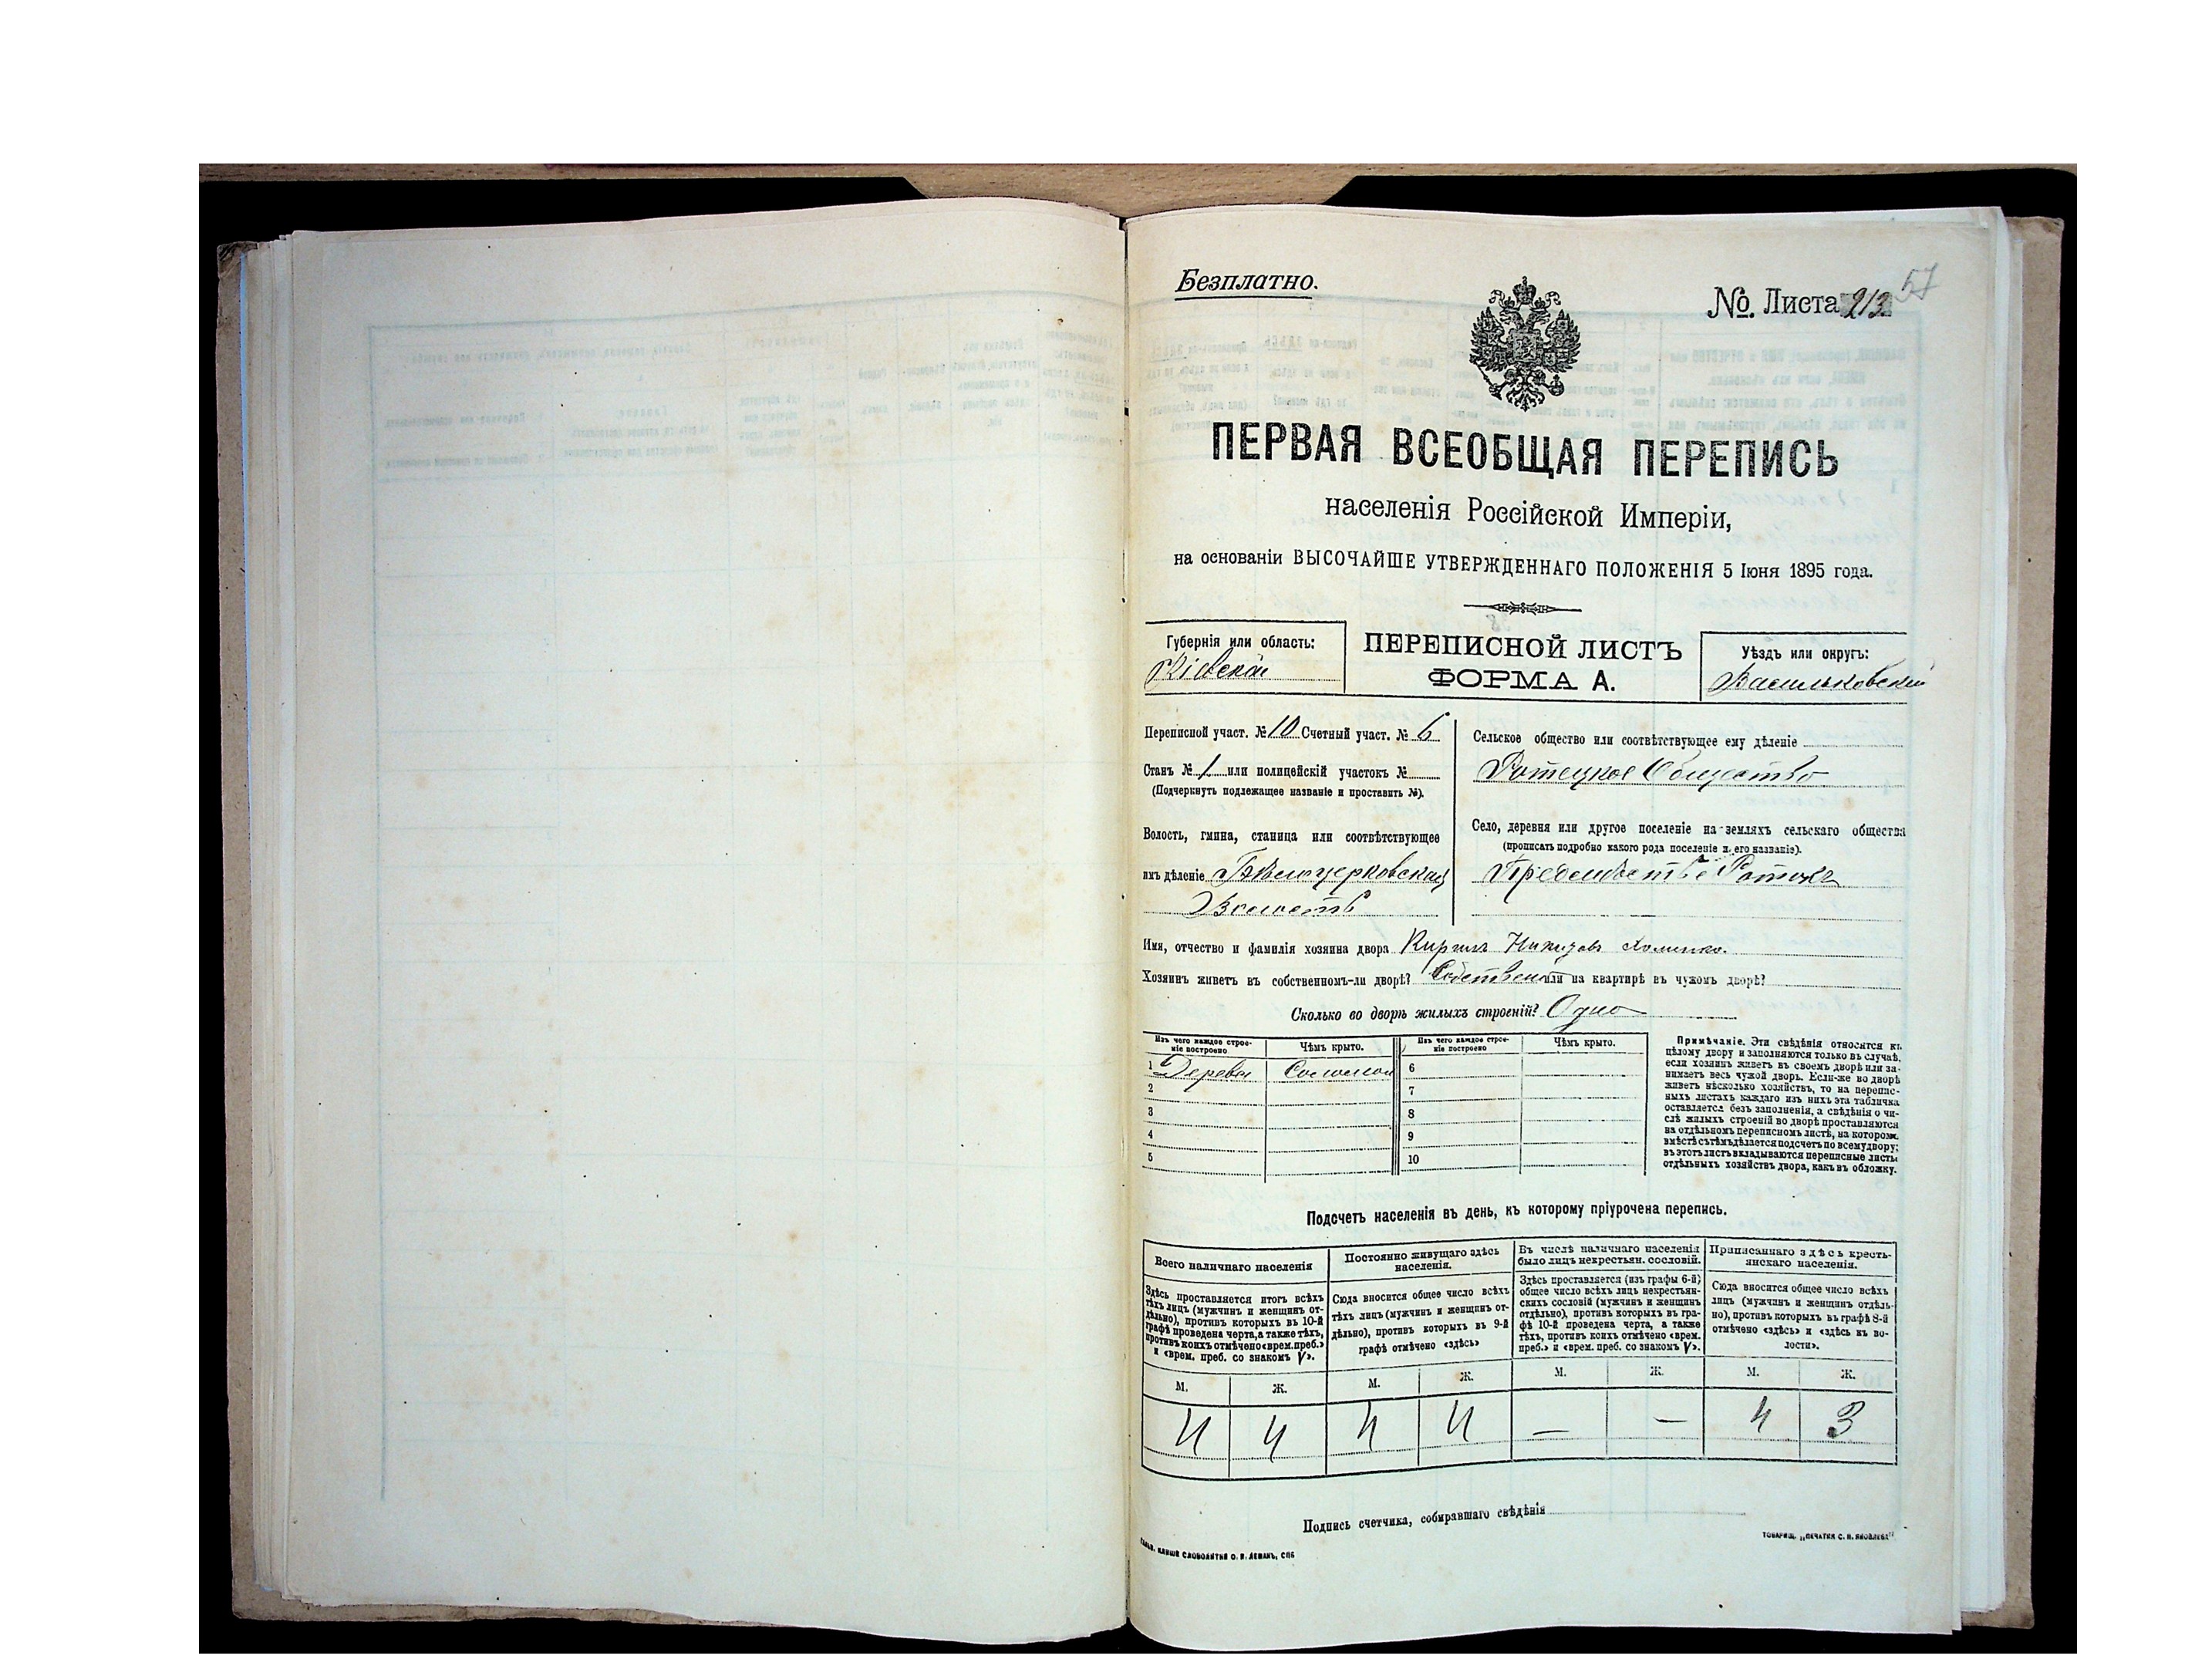 Безплатно.
№ Листа 213
57
ПЕРВАЯ ВСЕОБЩАЯ ПЕРЕПИСЬ
населенія Россійской Имперіи,
на основаніи ВЫСОЧАЙШЕ УТВЕРЖДЕННАГО ПОЛОЖЕНІЯ 5 Іюня 1895 года.
Губернія или область:
Кіевская
ПЕРЕПИСНОЙ ЛИСТЪ
ФОРМА А.
Уѣздъ или округъ:
Васильковскій
Переписной участ. № 10 Счетный участ. № 6
Станъ № 1 или полицейскій участокъ №
(Подчеркнуть подлежащее названіе и проставить №).
Волость, гмина, станица или соотвѣтствующее
имъ дѣленіе Бѣлоцерковская
Волость
Сельское общество или соотвѣтствующее ему дѣленіе
Ротецкое Общество
Село, деревня или другое поселеніе на земляхъ сельскаго общества
(прописать подробно какого рода поселеніе и его названіе).
Предмѣстье Ротокъ
Имя, отчество и фамилія хозяина двора Кирилъ
Хозяинъ живетъ въ собственномъ-ли дворѣ? Собственом или на квартирѣ въ чужомъ дворѣ?
Сколько во дворѣ жилыхъ строеній? Одно
Изъ чего каждое строе-
ніе построено
Чѣмъ крыто.
Изъ чего каждое строе-
ніе построено
Чѣмъ крыто.
1 Дерева Соломой
2
3
4
5
6
7
8
9
10
Примѣчаніе. Эти свѣдѣнія относятся къ
цѣлому двору и заполняются только въ случаѣ,
если хозяинъ живетъ въ своемъ дворѣ или за-
нимаетъ весь чужой дворъ. Если-же во дворѣ
живетъ нѣсколько хозяйствъ, то на перепис-
ныхъ листахъ каждаго изъ нихъ эта табличка
оставляется безъ заполненія, а свѣдѣнія о чи-
слѣ жилыхъ строеній во дворѣ проставляются
на отдѣльномъ переписномъ листѣ, на которомъ
вмѣстѣ съ тѣмъ дѣлается подсчетъ по всему двору;
въ этотъ листъ вкладываются переписные листы
отдѣльныхъ хозяйствъ двора, какъ въ обложку.
Подсчетъ населенія въ день, къ которому пріурочена перепись.
Всего наличнаго населенія
Здѣсь проставляется итогъ всѣхъ
тѣхъ лицъ (мужчинъ и женщинъ от-
дѣльно), противъ которыхъ въ 10-й
графѣ проведена черта, а также тѣхъ,
противъ коихъ отмѣчено «врем. преб.»
и «врем. преб. со знакомъ V».
Постоянно живущаго здѣсь
населенія.
Сюда вносится общее число всѣхъ
тѣхъ лицъ (мужчинъ и женщинъ от-
дѣльно), противъ которыхъ въ 9-й
графѣ отмѣчено «здѣсь»
Въ числѣ наличнаго населенія
было лицъ некрестьян. сословій.
Здѣсь проставляется (изъ графы 6-й)
общее число всѣхъ лицъ некрестьян-
скихъ сословій (мужчинъ и женщинъ
отдѣльно), противъ которыхъ въ гра-
фѣ 10-й проведена черта, а также
тѣхъ, противъ коихъ отмѣчено «врем.
преб.» и «врем. преб. со знакомъ V».
Приписаннаго здѣсь кресть-
янскаго населенія.
Сюда вносится общее число всѣхъ
лицъ (мужчинъ и женщинъ отдѣль-
но), противъ которыхъ въ графѣ 8-й
отмѣчено «здѣсь» и «здѣсь въ во-
лости».
М. Ж. М. Ж. М. Ж. М. Ж.
4 4 4 4 — — 4 3
Подпись счетчика, собиравшаго свѣдѣнія
СЛОВОЛИТНЯ О. И. ЛЕМАНЪ, СПБ
ТОВАРИЩ. „ПЕЧАТНЯ С. П. ЯКОВЛЕВА"